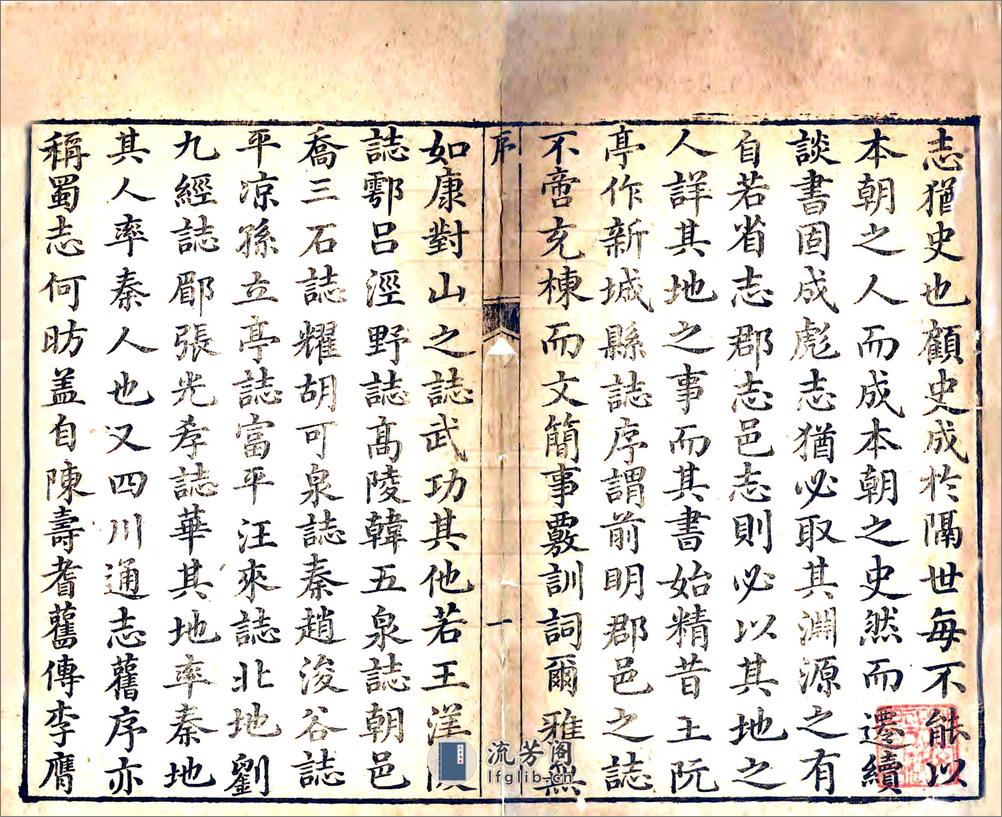 志猶史也顧史成於隔世每不能以
本朝之人而成本朝之史然而遷續
談書固成彪志猶必取其淵源之有
自若省志郡志邑志則必以其地之
人詳其地之事而其書始精昔王阮
亭作新城縣誌序謂前明郡邑之誌
不啻充棟而文簡事覈訓詞爾雅無
序
一
如康對山之誌武功其他若王渼陂
誌鄠呂涇野誌高陵韓五泉誌朝邑
喬三石誌耀胡可泉誌秦趙浚谷誌
平凉孫立亭誌富平汪來誌北地劉
九經誌郿張光孝誌華其地率秦地
其人率秦人也又四川通志舊序亦
稱蜀志何昉盖自陳壽耆舊傳李膺
流芳阁
lfglib.cn